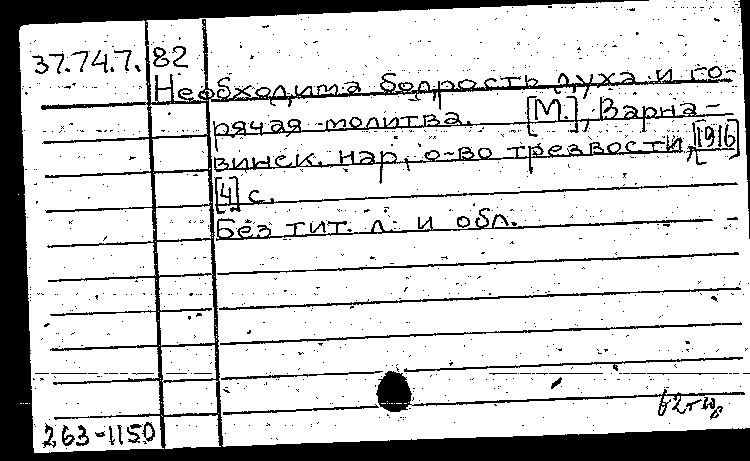 37.74.7.82
Необходима бодрость духа и го-
рячая молитва. [М.], Варна-
винск. нар. о-во трезвости, [1916]
[4] с.
Без тит. л. и обл.
263-1150